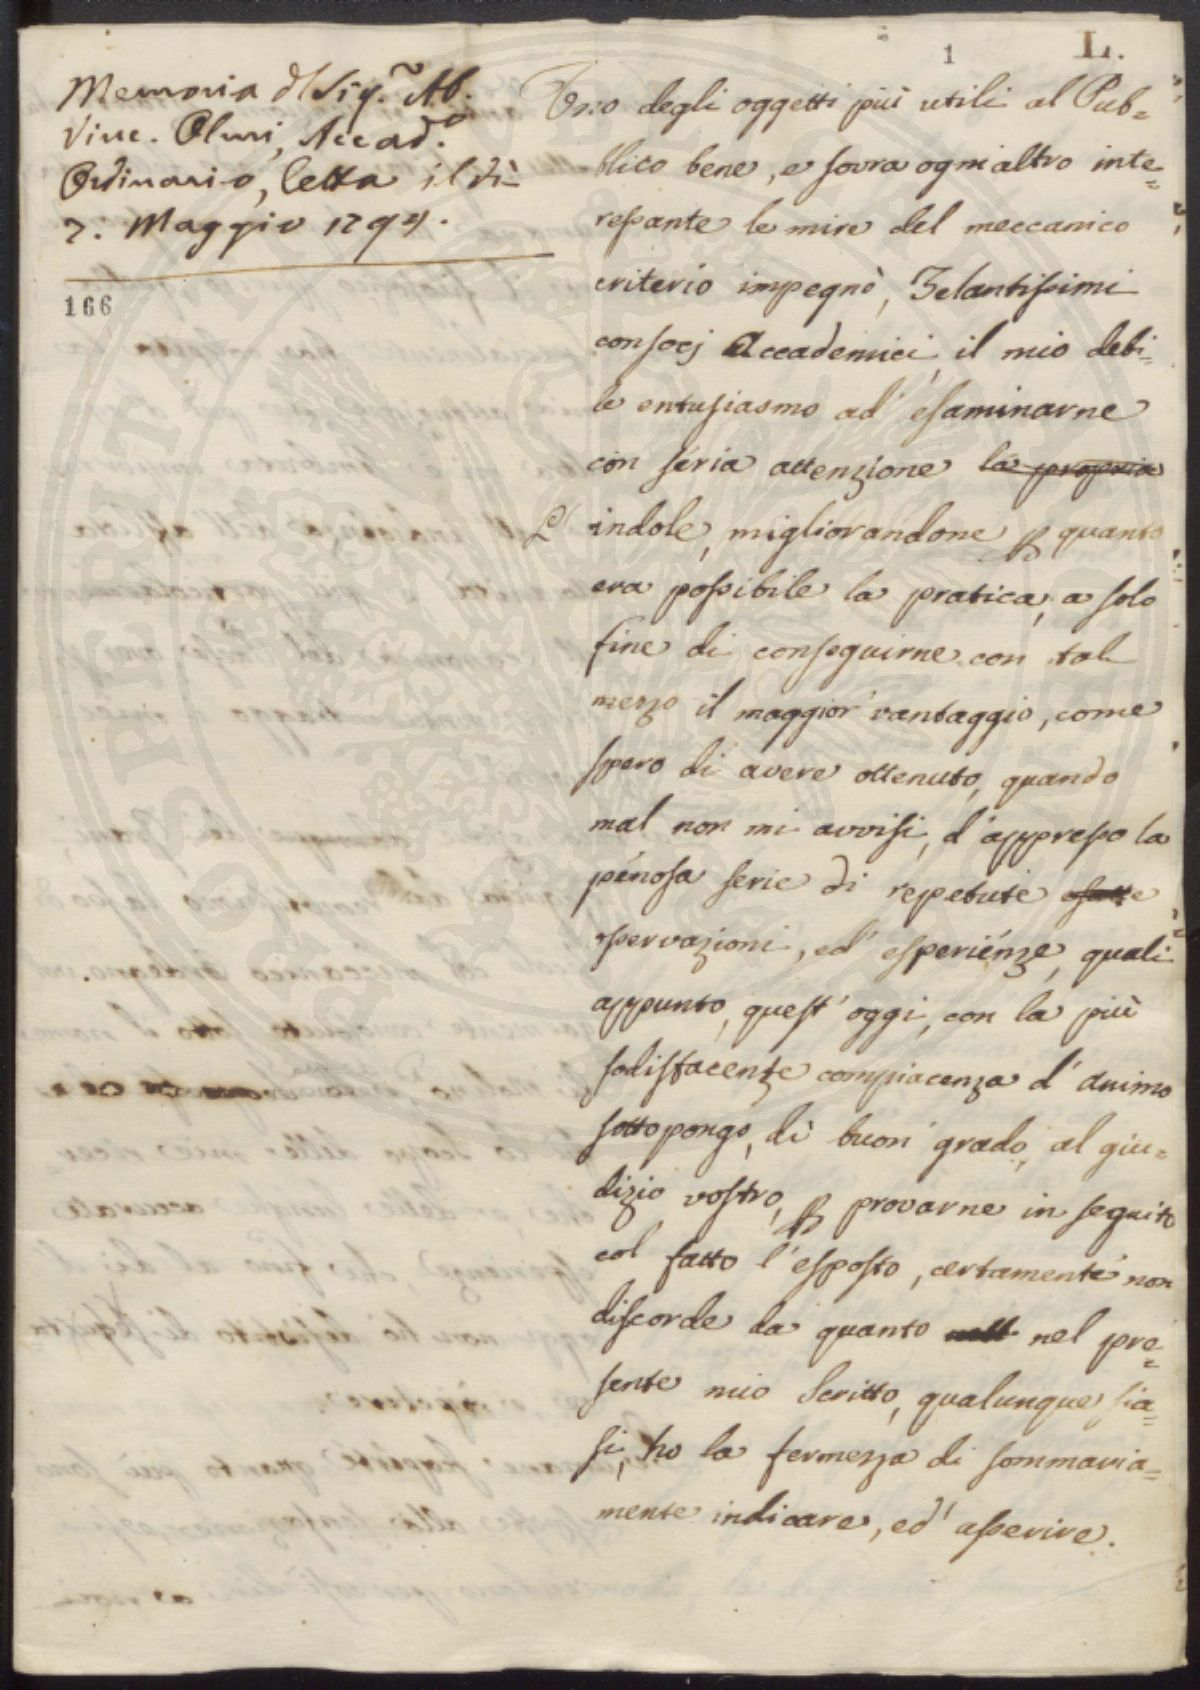 1
L.
Memoria d Sig.r Ab.
Vinc. Oluri, Accad.o
Ordinario, letta il dì
7. Maggio 1794.
166
Uno degli oggetti più utili al Pub=
blico bene, e sovra ogni altro inte=
ressante le mire del meccanico
criterio impegnò, Zelantissimi
consocj Accademici, il mio debi=
le entusiasmo ad' esaminarne
con seria attenzione la propria
L' indole, migliorandone p quanto
era possibile la pratica, a solo
fine di conseguirne con tal
mezzo il maggior vantaggio, come
spero di avere ottenuto, quando
mal non mi avvisi, d'appresso la
penosa serie di repetute esatte
osservazioni, ed' esperienze, quali
appunto, quest' oggi, con la più
sodisfacente compiacenza d' animo
sottopongo, di buon grado, al giu=
dizio vostro, p provarne in seguito
col fatto l' esposto, certamente non
discorde da quanto nell nel pre=
sente mio Scritto, qualunque sia=
si, ho la fermezza di sommaria=
mente indicare, ed' asserire.